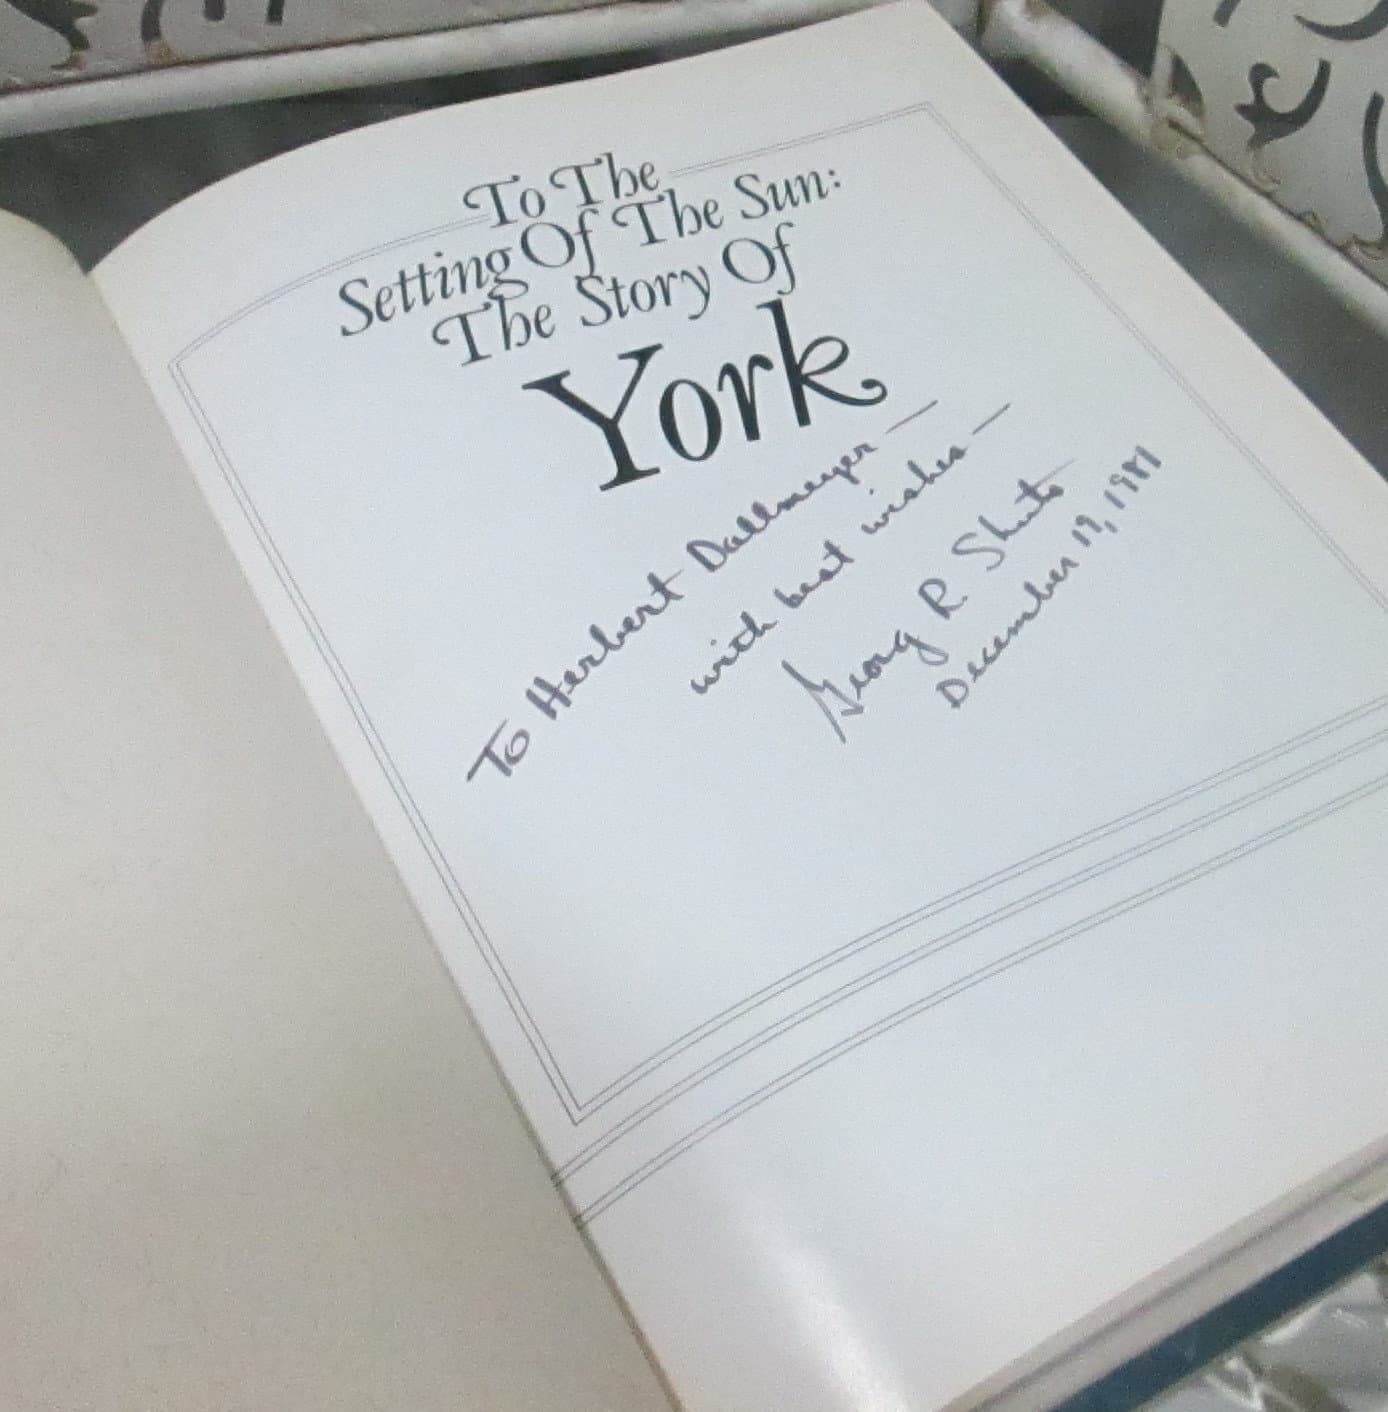 To The
Setting Of The Sun:
The Story Of
York
To Herbert Dallmeyer —
with best wishes —
Georg R Sheets
December 19, 1981